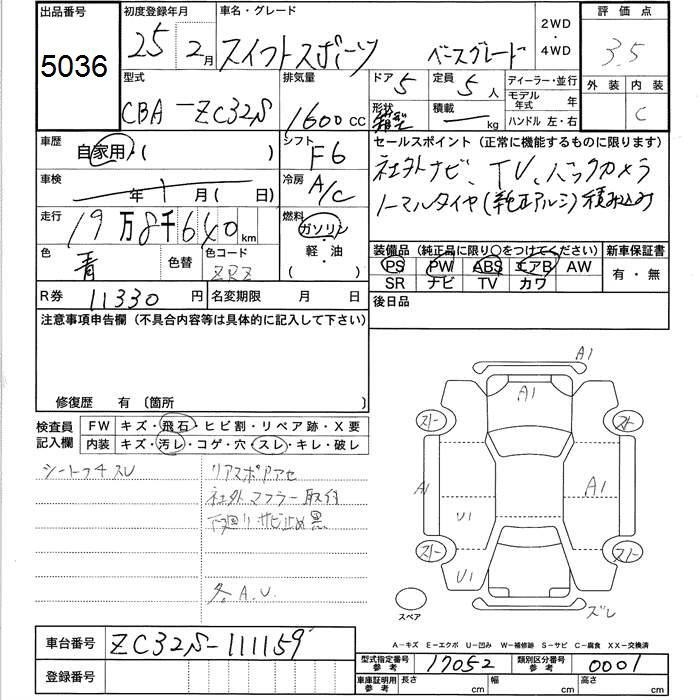 出品番号 初度登録年月 車名・グレード 2WD・4WD 評価点
5036 25 2月 スイフトスポーツ ベースグレード 3.5
型式 排気量 ドア 5 定員 5人 ディーラー・並行 外装 内装
CBA-ZC32S 1600cc 形状 箱型 積載 ー kg モデル年式 年 C
ハンドル 左・右
車歴 自家用・( ) シフト F6 セールスポイント (正常に機能するものに限ります)
車検 年 月 ( 日) 冷房 A/C 社外ナビ、TV、バックカメラ
走行 19万8千640km 燃料 ガソリン・軽・油・( ) ノーマルタイヤ(純正アルミ)積み込み
色 青 色替 色コード ZRZ 装備品 (純正品に限り〇をつけてください) 新車保証書
PS PW ABS エアB AW 有・無
SR ナビ TV カワ
R券 11330円 名変期限 月 日 後日品
注意事項申告欄 (不具合内容等は具体的に記入して下さい)
修復歴 有 〔箇所
検査員記入欄 FW キズ・飛石・ヒビ割・リペア跡・X要
内装 キズ・汚レ・コゲ・穴・スレ・キレ・破レ
シートフチスレ リアスポアセ
社外マフラー取付
下回リサビ止め黒
各A.U.
A1
A1
スリー スリー
A1 A1
U1
スリー スリー
U1
スペア ズレ
A-キズ E-エクボ U-凹み W-補修跡 S-サビ C-腐食 XX-交換済
車台番号 ZC32S-111159
登録番号
型式指定番号 参考 17052 類別区分番号 参考 0001
車庫証明用 参考 長さ cm 幅 cm 高さ cm